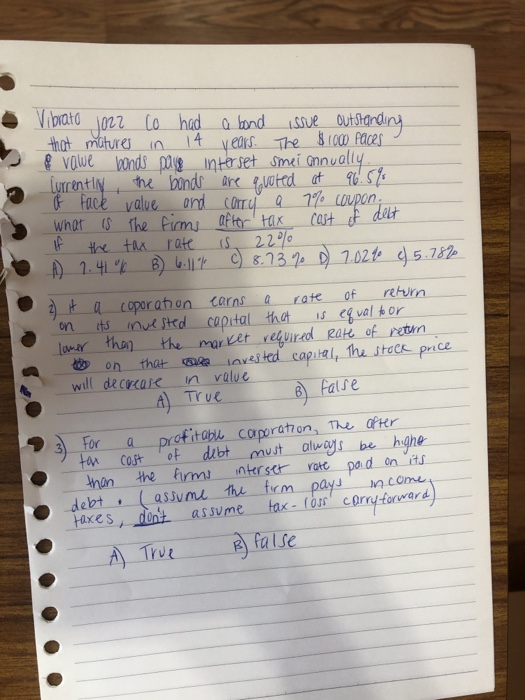 Vibrato jazz Co had a bond issue outstanding
that matures in 14 years. The $1000 faces
value bonds pays interset smei annually.
Currently, the bonds are quoted at 96.5%
of face value and carry a 7% coupon.
what is the firms after tax cost of debt
if the tax rate is 22%
A) 7.41% B) 6.11% C) 8.73% D) 7.02% e) 5.78%
2) if a coporation earns a rate of return
on its invested capital that is equal to or
lower than the market required Rate of return
on that invested capital, the stock price
will decrease in value
A) True B) false
3) For a profitable corporation, The after
tax cost of debt must always be higher
than the firms interset rate paid on its
debt. (assume the firm pays income
taxes, don't assume tax-loss carryforward)
A) True B) false